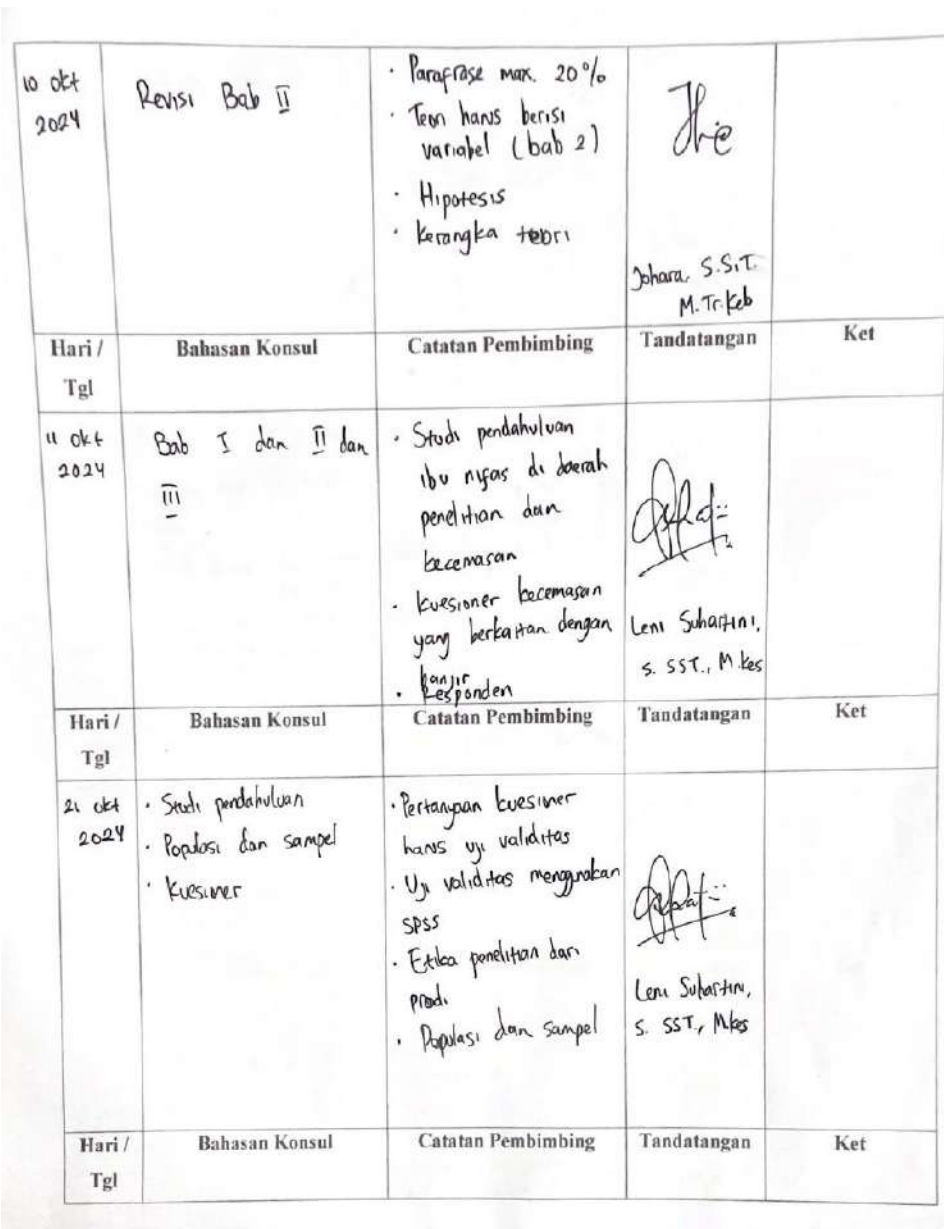 10 okt
2024
Revisi Bab II
· Parafrase max. 20%
· Teori harus berisi
variabel (bab 2)
· Hipotesis
· Kerangka teori
Johara, S.SiT.
M.Tr.Keb
Hari /
Tgl
Bahasan Konsul
Catatan Pembimbing
Tandatangan
Ket
11 okt
2024
Bab I dan II dan
III
· Studi pendahuluan
ibu nifas di daerah
penelitian dan
kecemasan
· kuesioner kecemasan
yang berkaitan dengan
banjir
· Responden
Leni Suhartini,
S. SST., M.kes
Hari /
Tgl
Bahasan Konsul
Catatan Pembimbing
Tandatangan
Ket
21 okt
2024
· Studi pendahuluan
· Populasi dan sampel
· Kuesiner
· Pertanyaan kuesiner
harus uji validitas
· Uji validitas menggunakan
SPSS
· Etika penelitian dari
prodi
· Populasi dan sampel
Leni Suhartini,
S. SST, M.kes
Hari /
Tgl
Bahasan Konsul
Catatan Pembimbing
Tandatangan
Ket